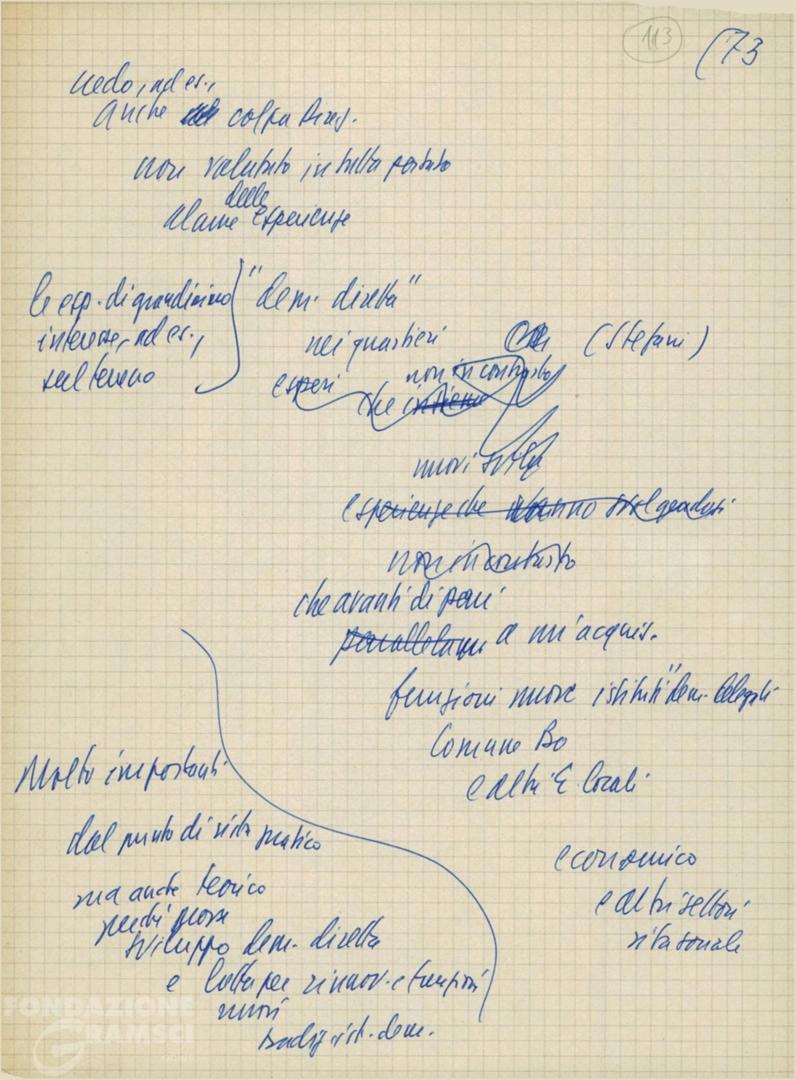 113
(73
vedo, ad es.,
anche colpa
non valutato in tutta portata
delle
alcune esperienze
le esp. di grandissimo
interesse, ad es.,
sul terreno
"dem. diretta"
nei quartieri (Stefani)
esperi
non in contrasto
che insieme
nuovi
esperienze che stanno
non in contrasto
che avanti di pari
a un'acquis.
funzioni nuove istituti "dem. delegata
Comune Bo
e altri E. locali
Molto importanti
dal punto di vista pratico
ma anche teorico
perché
sviluppo dem. diretta
e lotta per rinnov. e funzioni
nuovi
ist. dem.
economico
e altri settori
vita sociale
FONDAZIONE
GRAMSCI